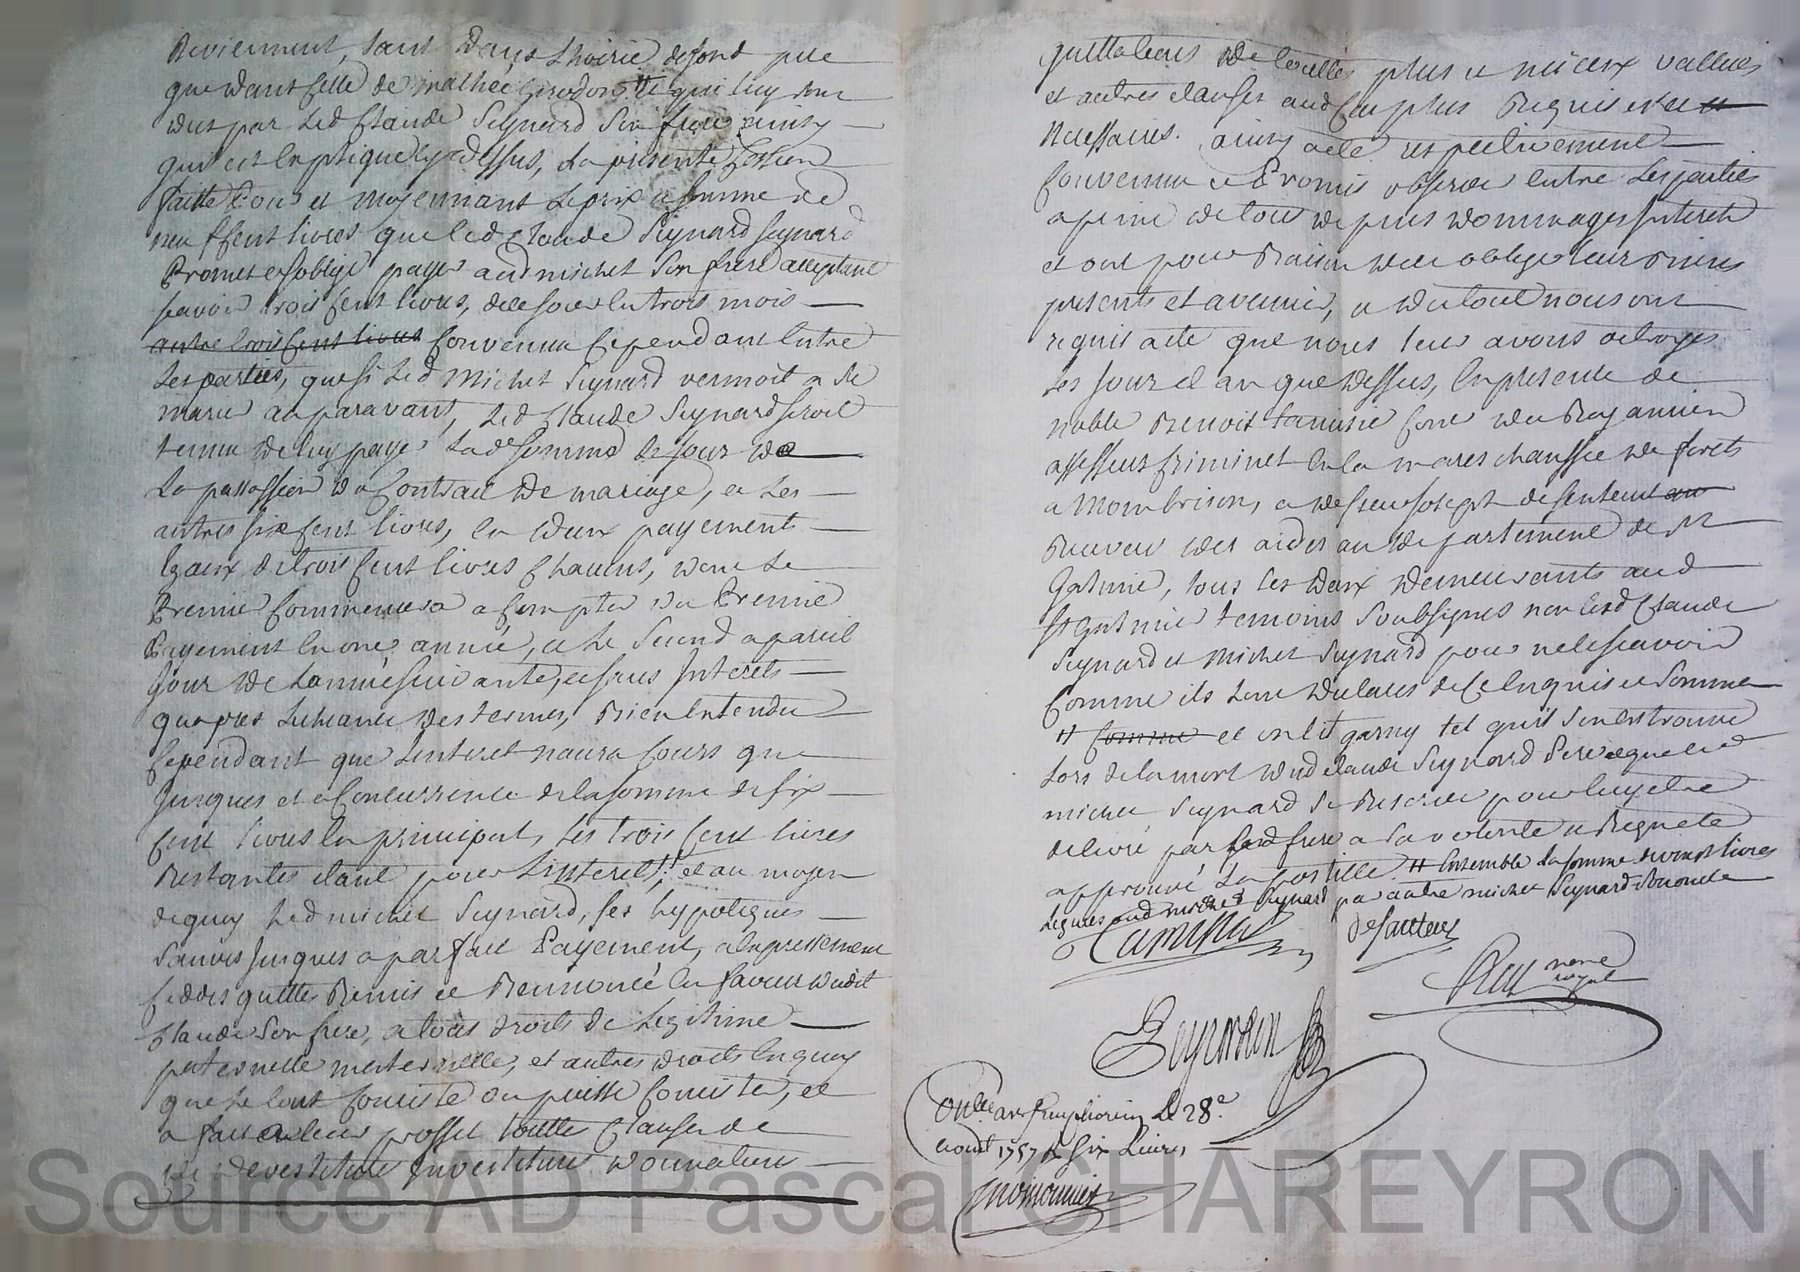 Reviennent, tant dans Lhoirie de fond pere
que dans Celle de mathée girodon # qui luy sont
dus par Led Claude Seynard Son frere ainsy
qui est Expliqué Cydessus, La présente Cession
faitte Pour et moyennant Le prix et somme de
neuf Cent livres que led Claude Seynard Seynard
Promet et soblige payer aud michel Son frere acceptant
scavoir trois Cent livres, de ce jour En trois mois
autre trois Cent livres Convenu Cependant Entre
Les parties, que si Led Michel Seynard venoit a se
marier auparavant, Led Claude Seynard seroit
tenu de luy payer Lad.e Somme Le jour de
La passassion du Contract de mariage, et Les
autres six Cent livres, En deux payements
Egaux de trois Cent livres Chacuns, dont Le
Premier Commencera a Compter du Premier
Payement En une année, et Le Second a pareil
Jour de Lannée suivante, et sans Interets
quapres Lecheance des termes, Bien Entendu
Cependant que Linteret naura Cours que
Jusques et a Concurrence de la somme de six
Cent livres En principal, les trois Cent livres
Restantes etant pour Linteret; et au moyen
de quoy Led michel Seynard, ses hypoteques
Sauves Jusques a parfait Payement, a Expressement
Ceddés quitté Remis et Renoncé En faveur dudit
Claude Son frere, a tous droits de Legitime
paternelle maternelle, et autres droits En quoy
que Le tout Consiste ou puisse Consister, et
a fait a leur proffit toutte Clauses de
devestiture Investiture donnation
quittations de touttes plus et mieux vallues
et autres clauses aud Cas plus Requises et
Necessaires. ainsy a été respectivement
Convenu et Promis observer Entre Les parties
a peine de tous depens dommages Interets
et ont pour Raison de ce obligé leurs Biens
presents et avenir, et du tout nous ont
requis acte que nous leur avons octroyé
Les jour et an que dessus, En présence de
noble Benoit Camisie Coner du Roy ancien
assesseur Criminel En la mareschaussée de forets
a Mombrison, et de sieur Joseph
Receveur des aides au departement de St
Galmier, tous les deux demeurants aud
St Galmier temoins Soubsignés non lesd Claude
Seynard et Michel Seynard pour ne le scavoir
Comme ils l'ont declaré de Ce Enquis et Sommé
# Comme et un lit garny tel quil s'en est trouvé
Lors de la mort dud Claude Seynard Pere lequel led
michel Seynard Se Reserve pour luy être
delivré par sond frere a sa volonté et Requete
approuvé La postille. # Ensemble La somme de vingt livres
Leguée aud michel Seynard par autre michel Seynard Son oncle
desauteur
nore
royal
onlle a st symphorien Le 28e
aout 1757 R Six Livres